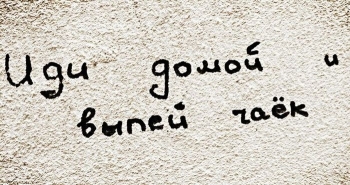 Иди домой и
выпей чаёк